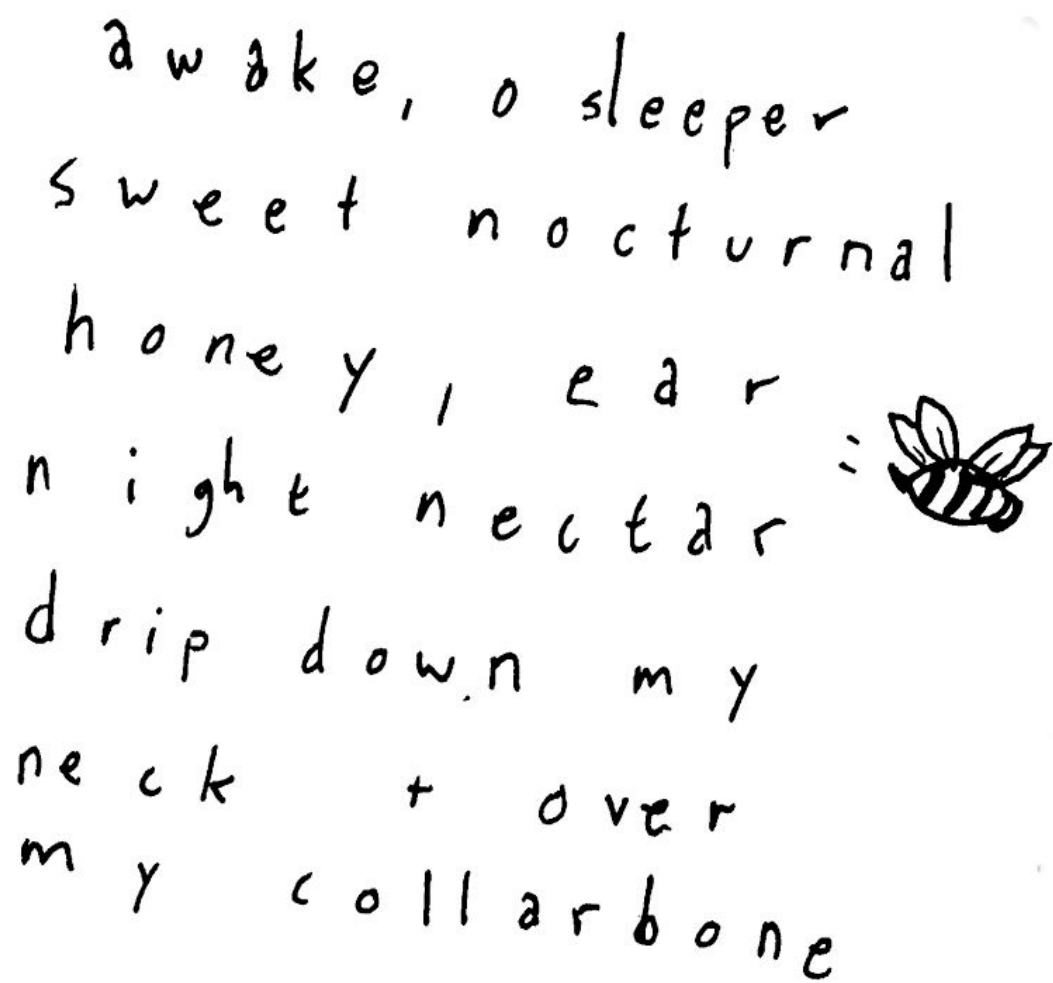 awake, o sleeper
sweet nocturnal
honey, ear
night nectar
drip down my
neck + over
my collarbone